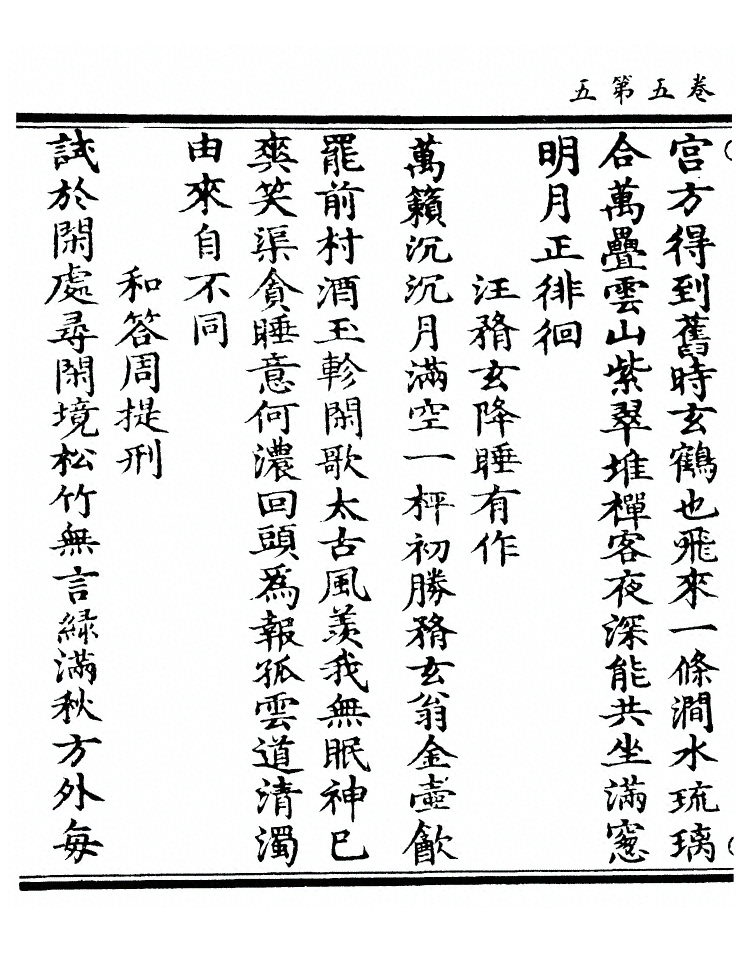 卷五第五
宮方得到舊時玄鶴也飛來一條澗水琉璃
合萬疊雲山紫翠堆禪客夜深能共坐滿窓
明月正徘徊
汪矟玄降睡有作
萬籟沉沉月滿空一枰初勝矟玄翁金壷飮
罷前村酒玉軫閑歌太古風羨我無眠神已
爽笑渠貪睡意何濃回頭爲報孤雲道清濁
由來自不同
和答周提刑
試於閑處尋閑境松竹無言綠滿秋方外每